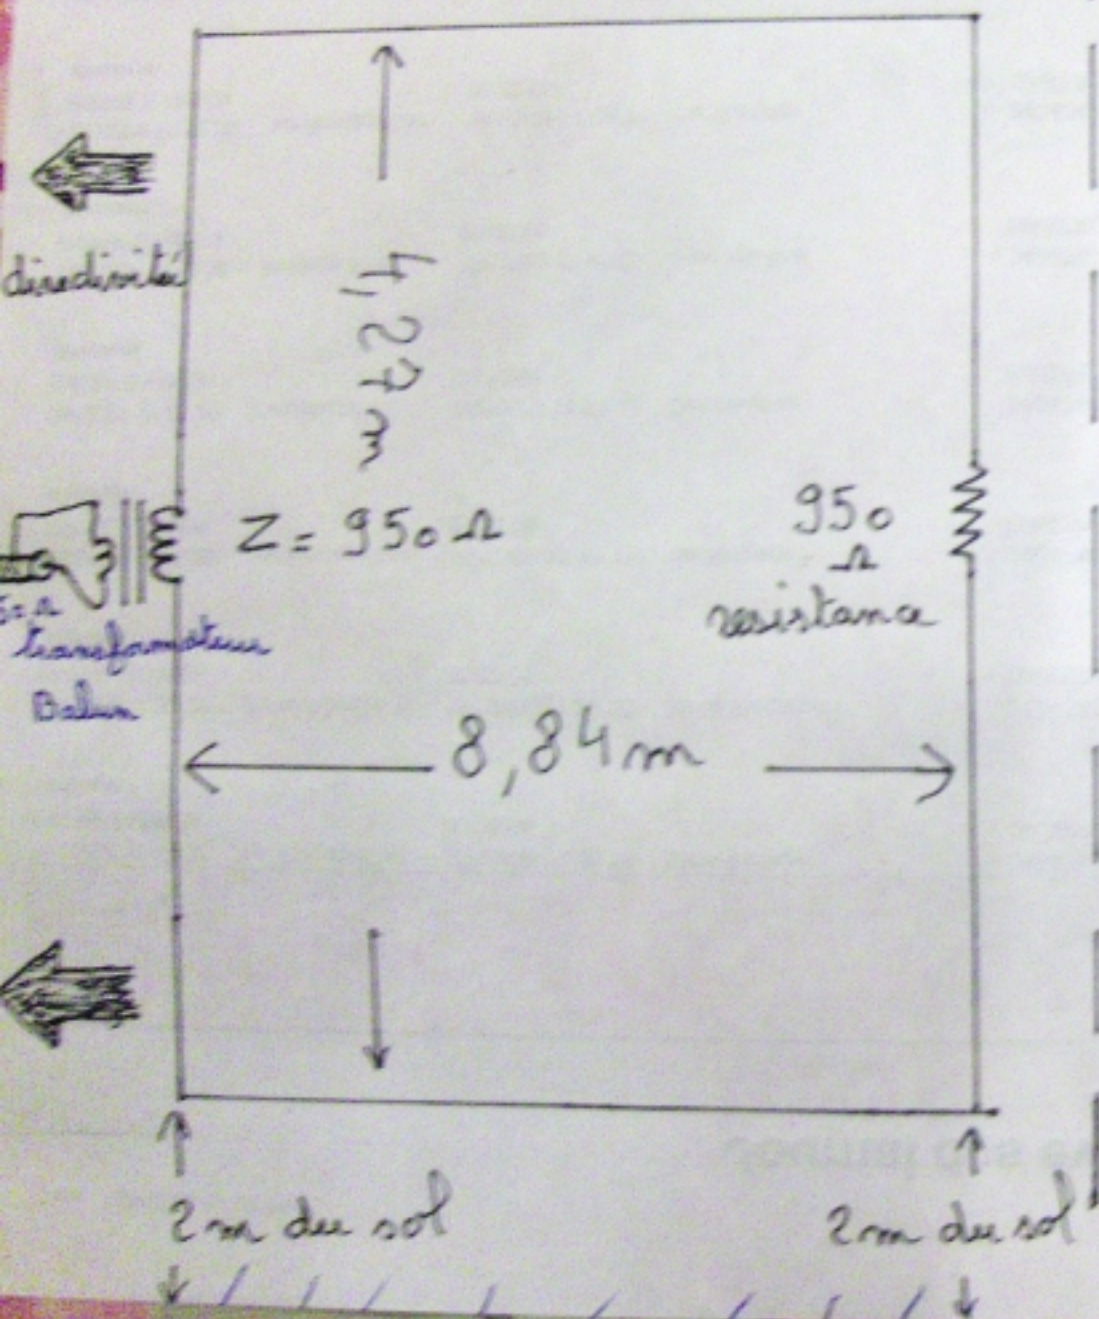 directivité
4,27m
Z = 950 Ω
950
Ω
resistance
50 Ω
transformateur
Balun
8,84m
2m du sol
2m du sol